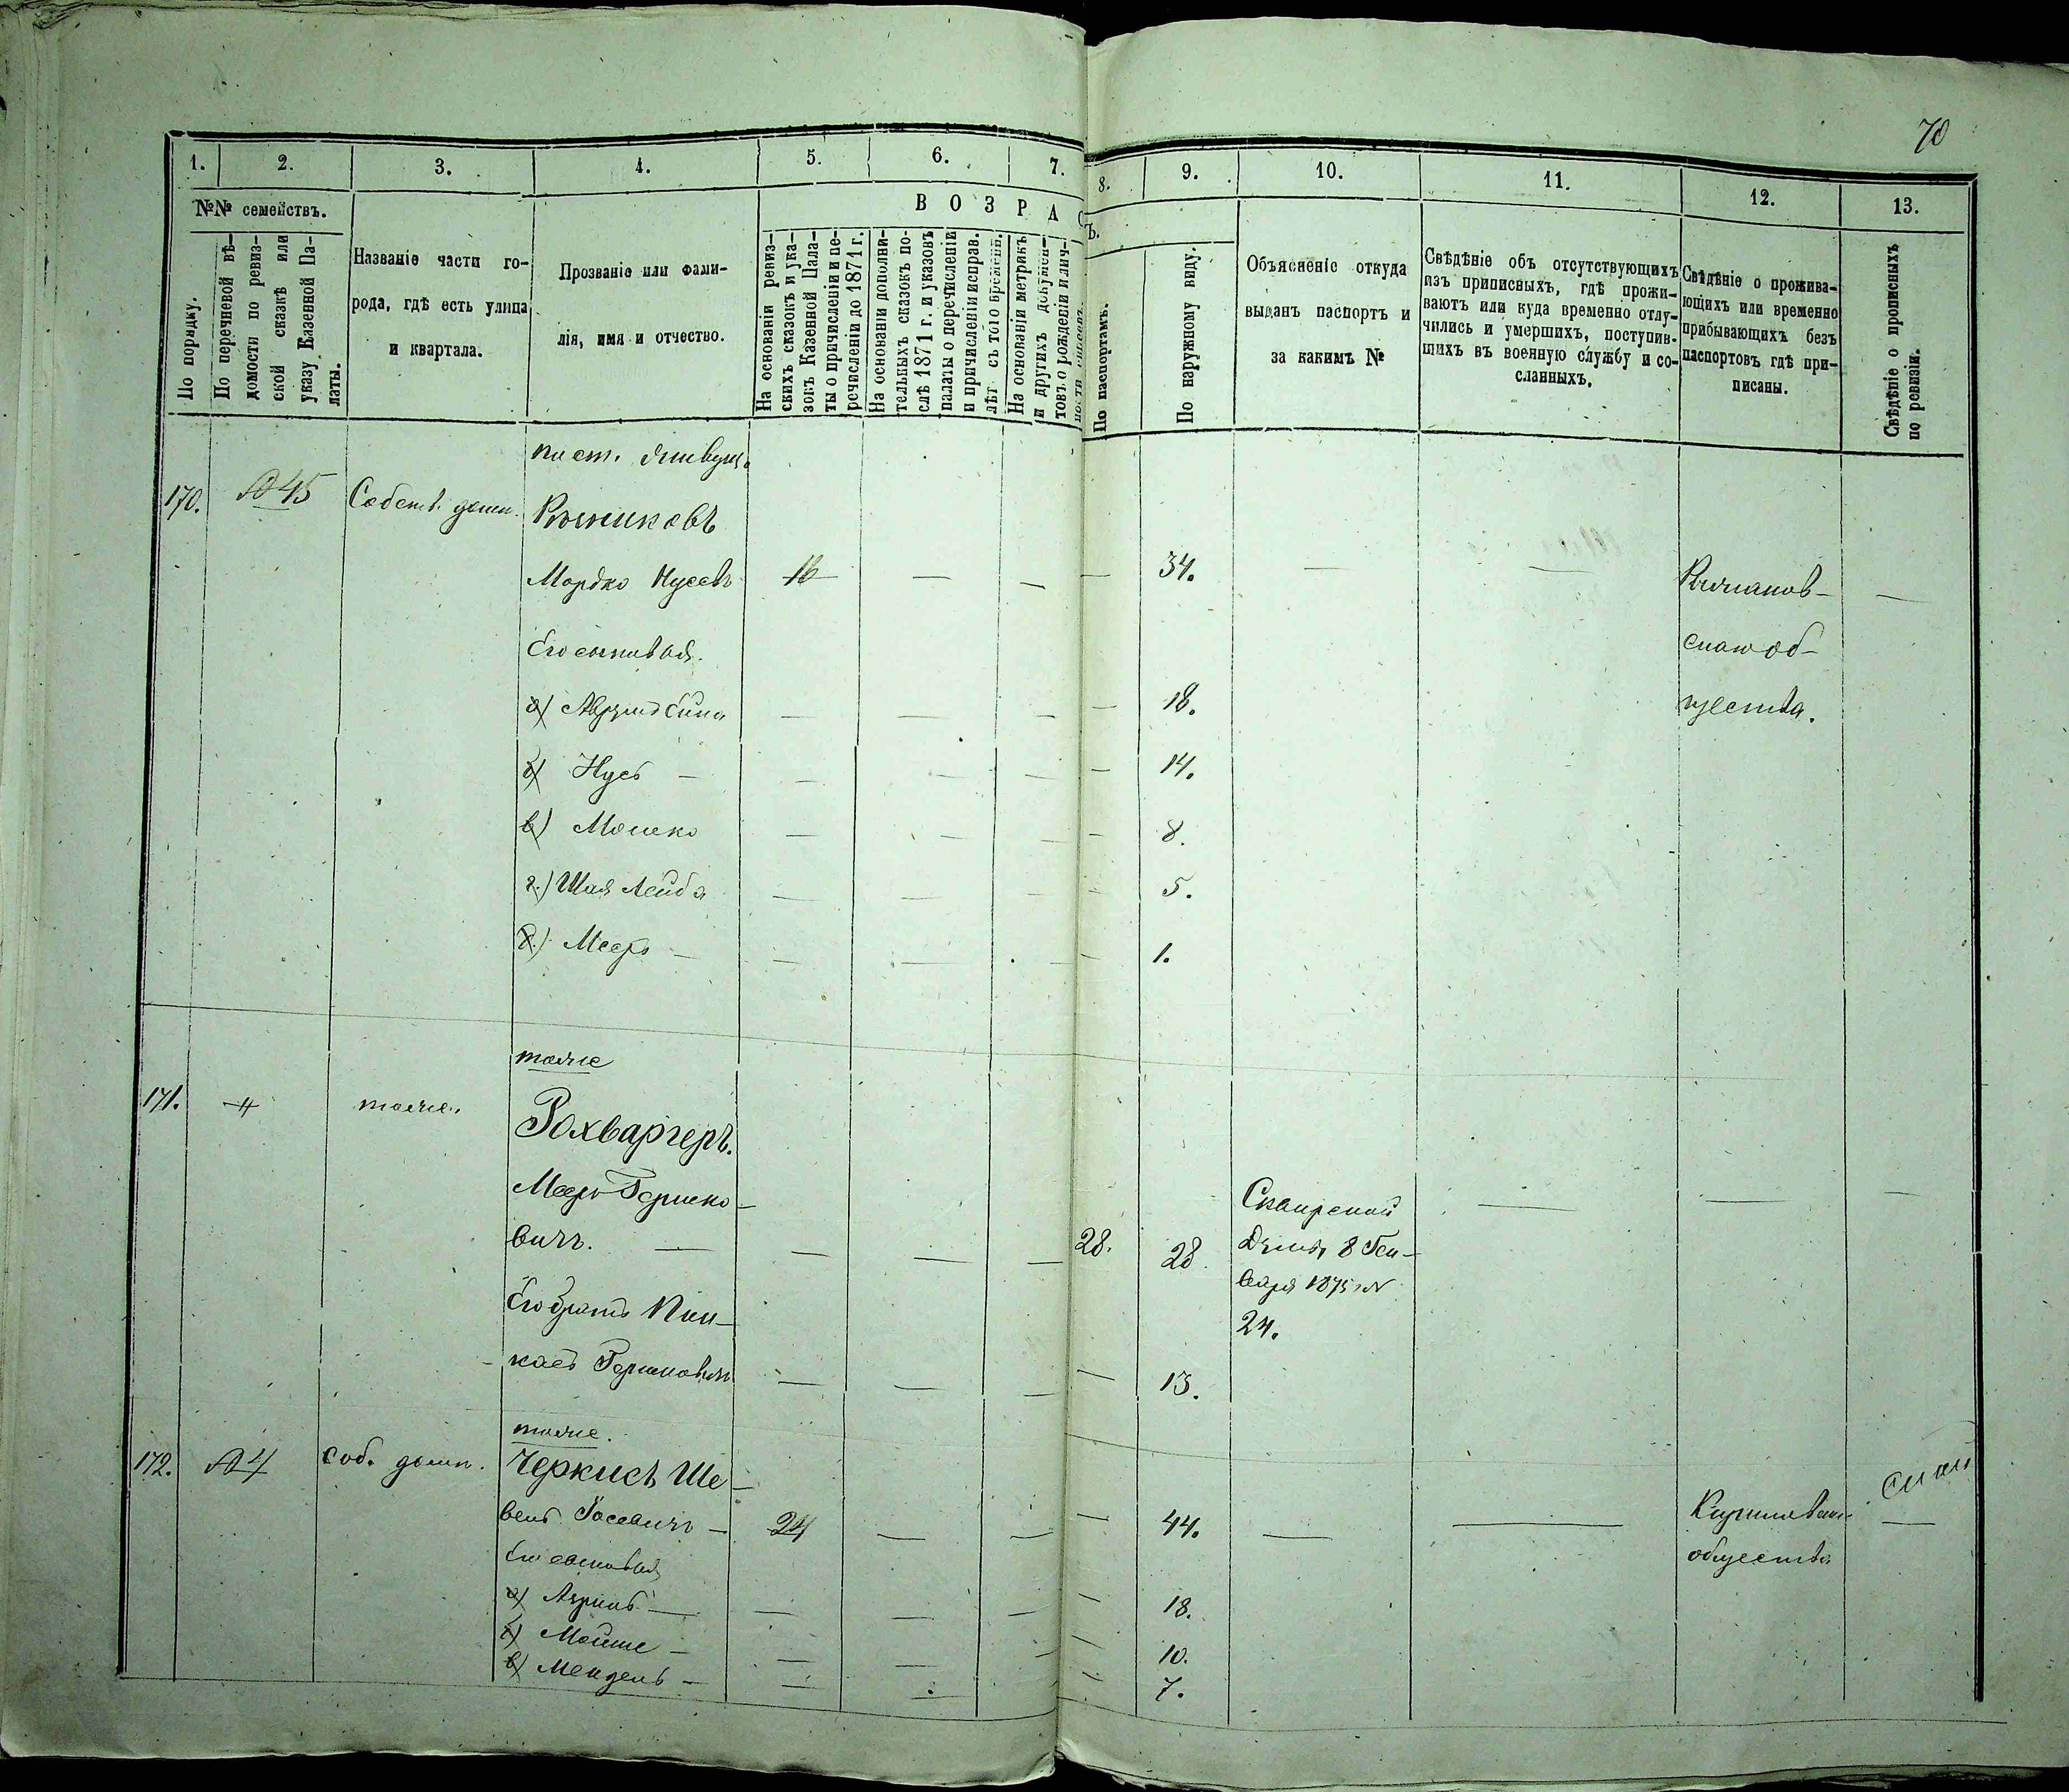 70
1. 2. 3. 4. 5. 6. 7. 8. 9. 10. 11. 12. 13.
№№ семействъ.
По порядку.
По перечневой вѣ-
домости по ревиз-
ской сказкѣ или
указу Казенной Па-
латы.
Названіе части го-
рода, гдѣ есть улица
и квартала.
Прозваніе или фами-
лія, имя и отчество.
ВОЗРАС
Ъ.
На основаніи ревиз-
скихъ сказокъ и ука-
зовъ Казенной Пала-
ты о причисленіи и пе-
речисленіи до 1871 г.
На основаніи дополни-
тельныхъ сказокъ по-
слѣ 1871 г. и указовъ
палаты о перечисленіи
и причисленіи исправ.
лѣт съ того времени.
На основаніи метрикъ
и другихъ докумен-
товъ о рожденіи и лич-
По паспортамъ.
По наружному виду.
Объясненіе откуда
выданъ паспортъ и
за какимъ №
Свѣдѣніе объ отсутствующихъ
изъ приписныхъ, гдѣ прожи-
ваютъ или куда временно отлу-
чились и умершихъ, поступив-
шихъ въ военную службу и со-
сланныхъ.
Свѣдѣніе о прожива-
ющихъ или временно
прибывающихъ безъ
паспортовъ гдѣ при-
писаны.
Свѣдѣніе о прописныхъ
по ревизіи.
170. № 45 Собств. домъ.
Мордко Нусевъ 16 — — — 34. — — —
Его сыновья.
а) — — — — 18. щества.
б) Нусъ — — — — — 14.
в) Мошко — — — — 8.
г.) Шая Лейба — — — — 5.
д.) Мееръ — — — — — 1.
тоже
171. —„ тоже.
Рохваргеръ.
Мееръ Гершко-
вичъ. — — — — 28. 28. Сквирской
Думы, 8 Ген-
варя 1875 г. №
24.
Его братъ Пин-
касъ Гершковичъ — — — — 13.
тоже.
172. № 4 соб. домъ. Черкисъ Ше-
24 — — — 44. — — —
общества
Его сыновья
а) — — — — — 18.
б) Мойше — — — — — 10.
в) Мендель — — — — — 7.